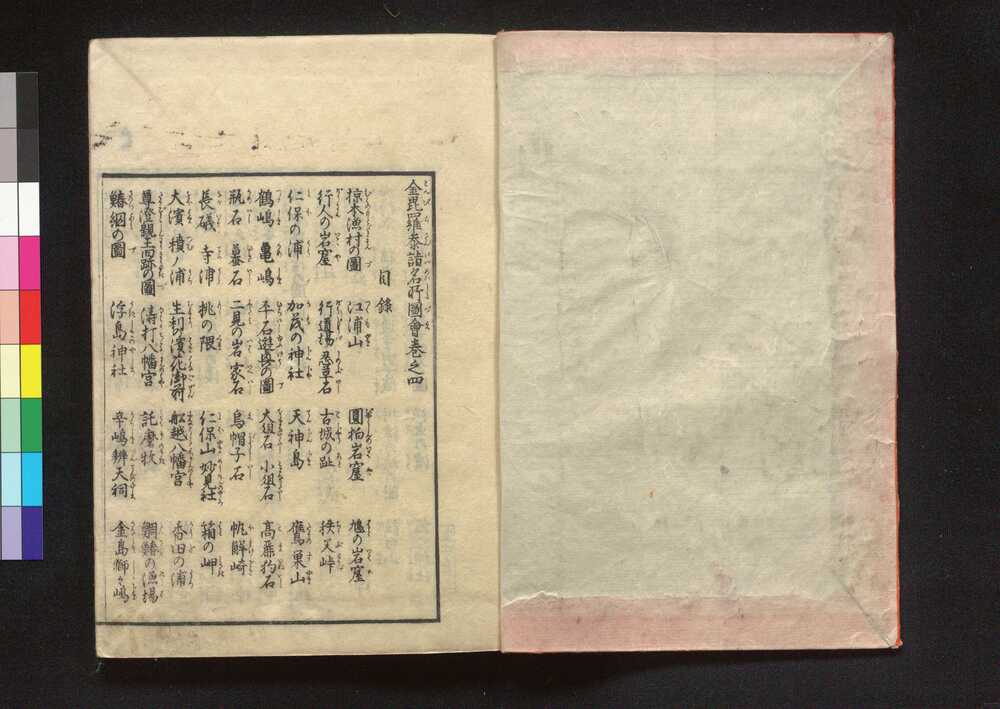 金毘羅參詣名所圖會巻之四
目錄
椋木漁村の圖 江浦山 圓柏岩窟 鳩の岩窟
行人の岩窟 行道場 忍草石 古城の趾 挟天峠
仁保の浦 加茂の神社 天神島 鷹巣山
鶴嶋 亀嶋 平石遊舟の圖 大俎石 小俎石 高麗狗石
瓶石 蟇石 二見の岩 家石 烏帽子石 帆解崎
長礒 寺浦 桃の隈 仁保山 妙見社 箱の岬
大濱 積ノ浦 生利の濱 花御前 舩越八幡宮 香田の浦
尊澄親王古跡の圖 濤打八幡宮 託麼牧 鯛鰆の漁場
鰆網の圖 浮島神社 辛嶋辨天祠 金島 獅々嶋